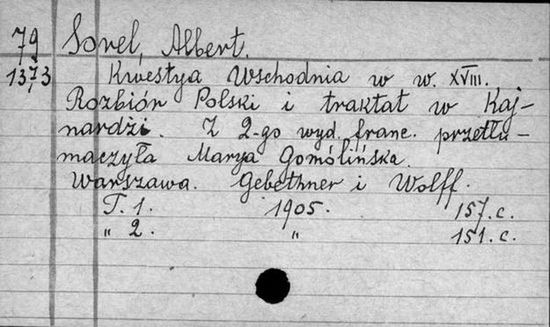 79 Sorel, Albert.
1373 Kwestya Wschodnia w w. XVIII.
Rozbiór Polski i traktat w Kaj-
nardżi. Z 2-go wyd. franc. przetłu-
maczyła Marya Gomólińska.
Warszawa. Gebethner i Wolff.
T. 1. 1905. 157. c.
„ 2. „ 151. c.